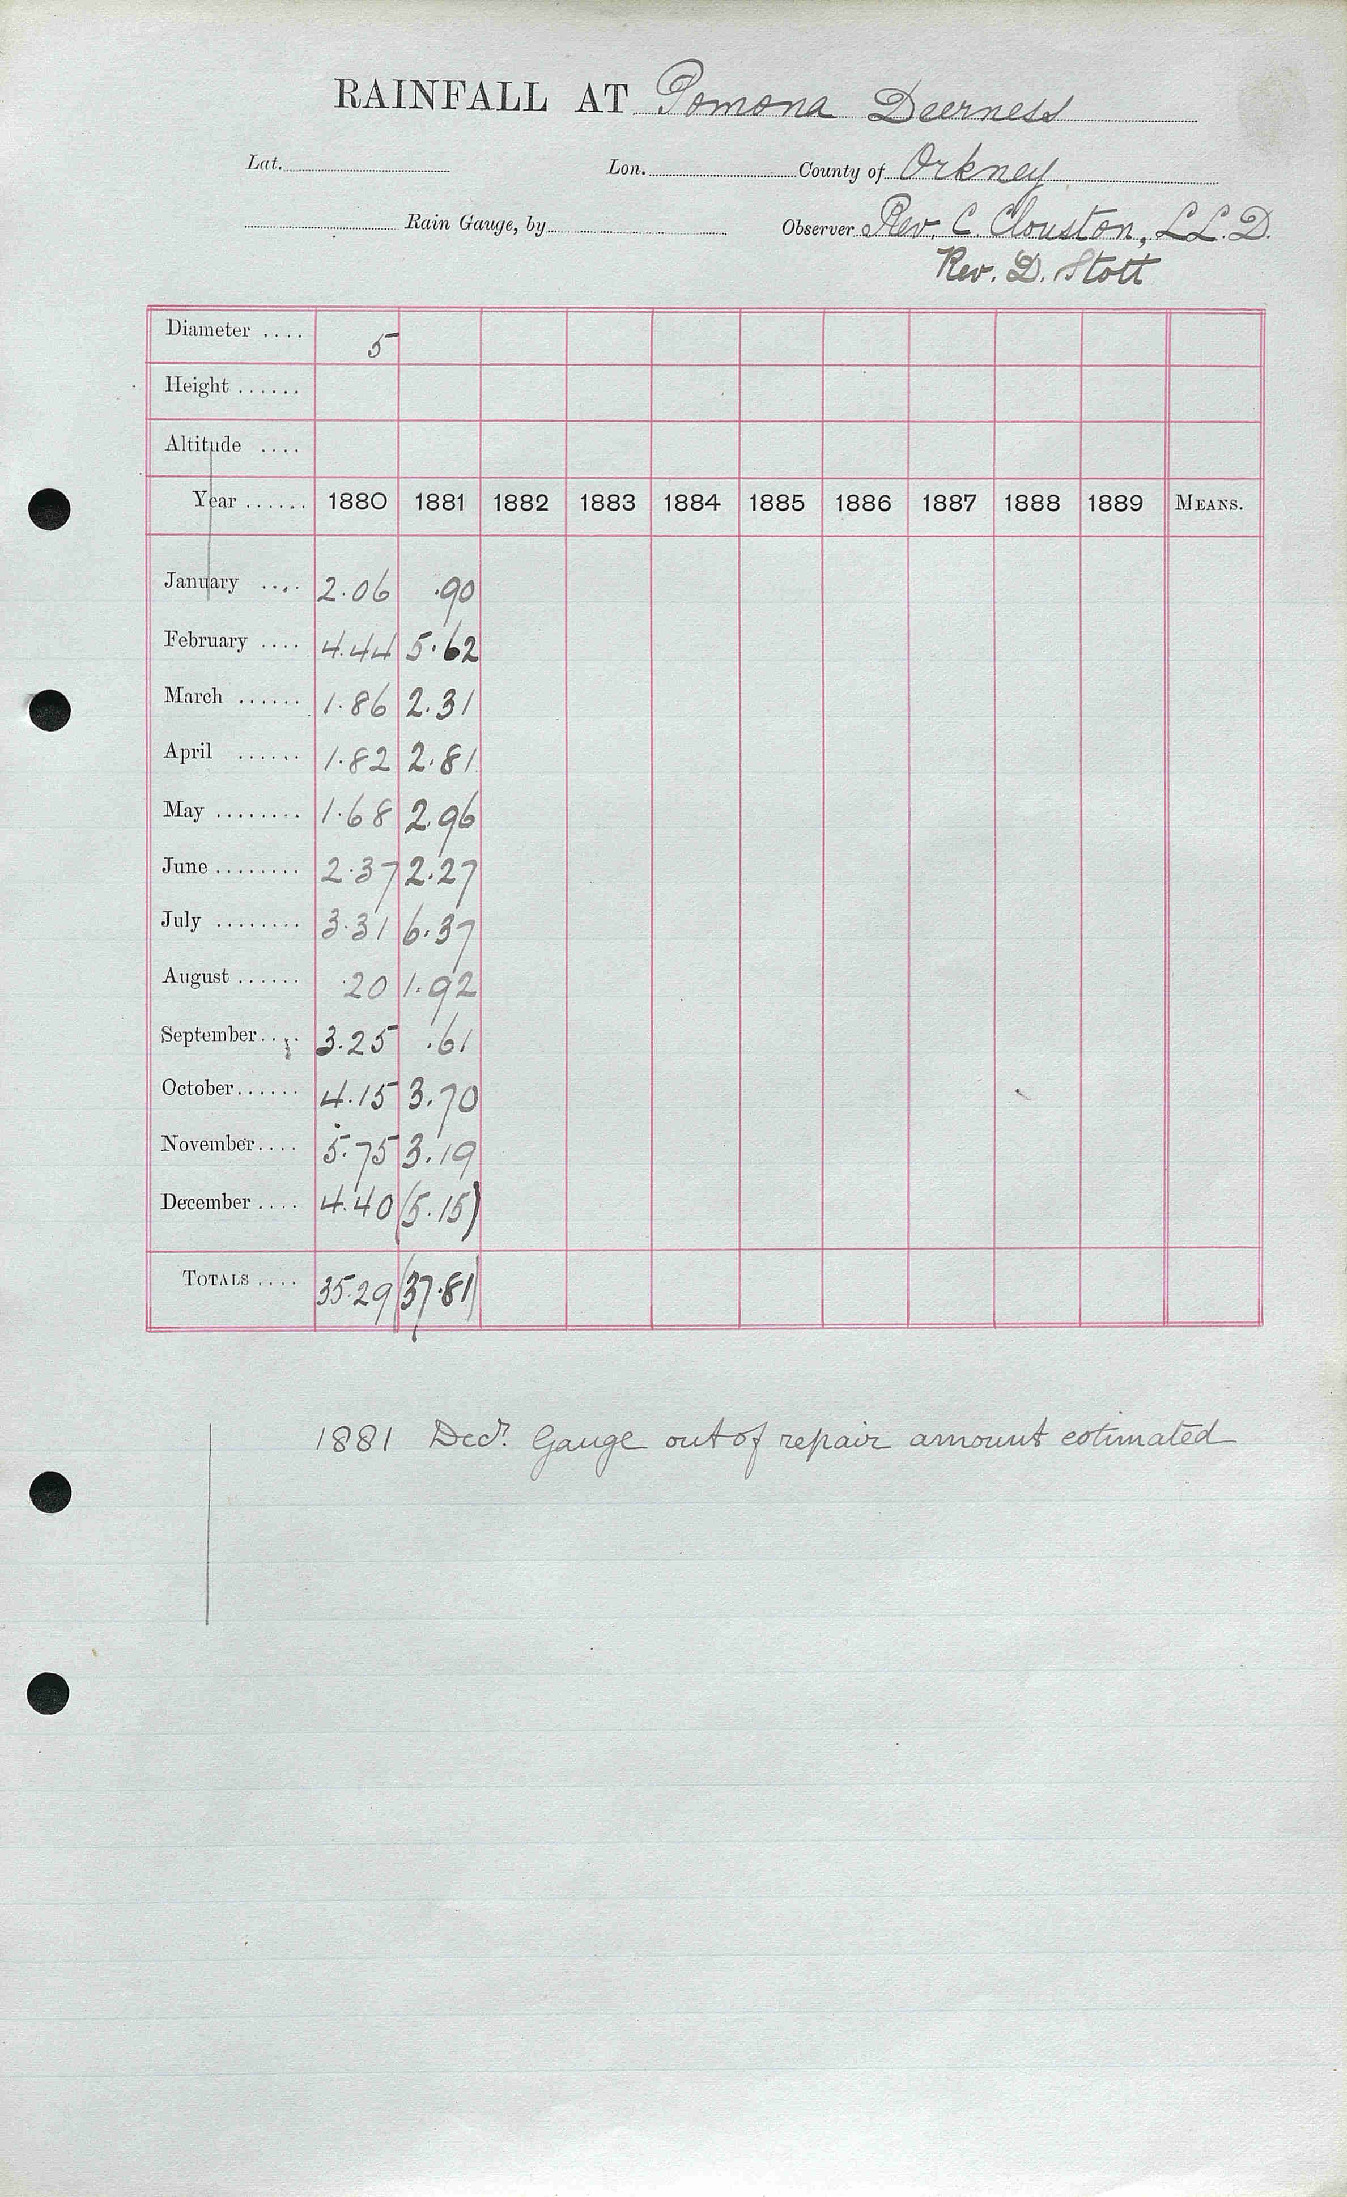 RAINFALL AT Pomona Deerness
Lat. Lon. County of Orkney
Rain Gauge, by Observer Rev. C. Clouston, LL.D.
Rev. D. Stott
Diameter .... 5
Height ......
Altitude ....
Year ...... 1880 1881 1882 1883 1884 1885 1886 1887 1888 1889 MEANS.
January .... 2.06 .90
February .... 4.44 5.62
March ...... 1.86 2.31
April ...... 1.82 2.81
May ........ 1.68 2.96
June ........ 2.37 2.27
July ........ 3.31 6.37
August ...... .20 1.92
September.... 3.25 .61
October...... 4.15 3.70
November.... 5.75 3.19
December .... 4.40 (5.15)
TOTALS .... 35.29 (37.81)
1881 Decr. Gauge out of repair amount estimated